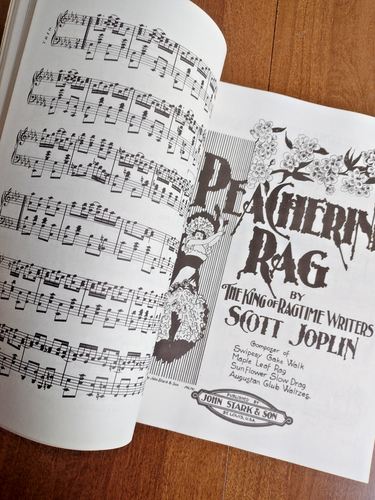 TRIO.
PEACHERIN
RAG
BY
THE KING OF RAGTIME WRITERS
SCOTT JOPLIN
Composer of
Swipesy Cake Walk
Maple Leaf Rag
Sunflower Slow Drag
Augustan Club Waltzes.
John Stark & Son
PUBLISHED BY
JOHN STARK & SON
ST. LOUIS, U.S.A.